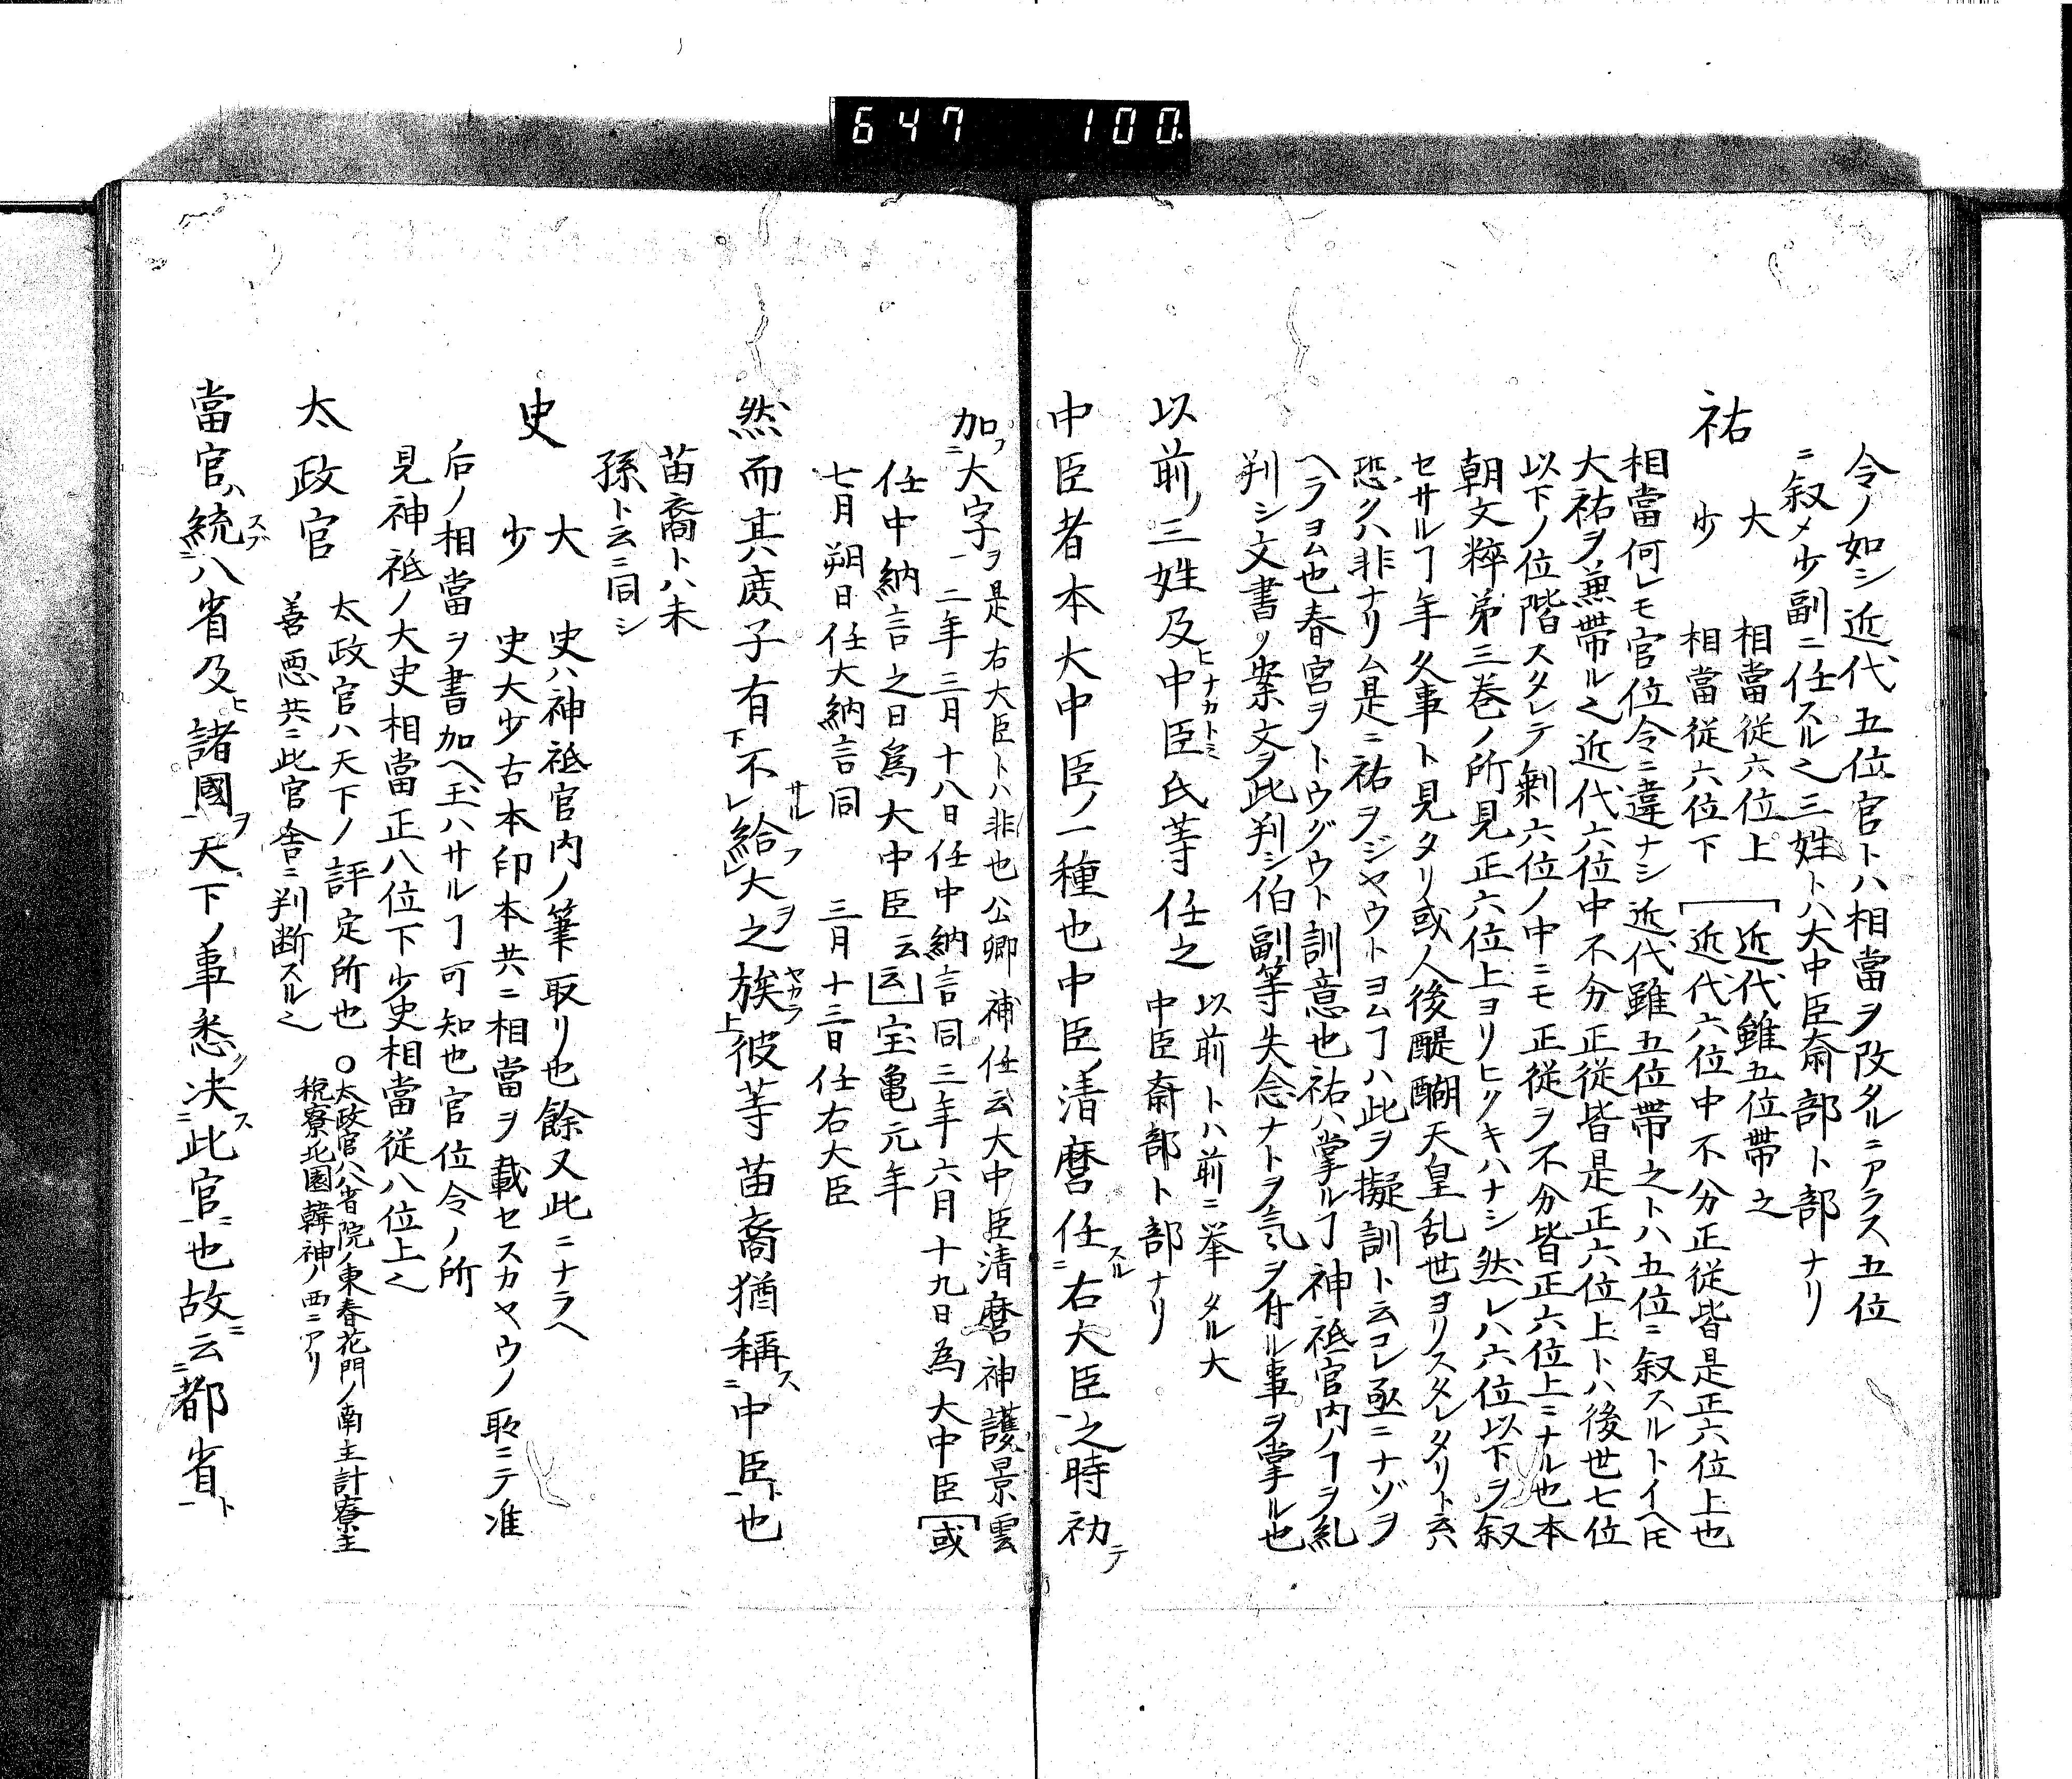 647 100.
令ノ如シ近代五位官トハ相當ヲ改タルニアラス五位
ニ叙メ少副ニ任スル之三姓トハ大中臣斎部卜部ナリ
祐
大 相當従六位上 近代雖五位帯之
少 相當従六位下 近代六位中不分正従皆是正六位上也
相當何レモ官位令ニ違ナシ近代雖五位帯之トハ五位ニ叙スルトイヘ𪜈
大祐ヲ兼帯ル之近代六位中不分正従皆是正六位上トハ後世七位
以下ノ位階スタレテ剰六位ノ中ニモ正従ヲ不分皆正六位上ニナル也本
朝文粹第三巻ノ所見正六位上ヨリヒクキハナシ然レハ六位以下ヲ叙
セサルヿ年久事ト見タリ或人後醍醐天皇乱世ヨリスタレタリト云ハ
恐クハ非ナリム是ニ祐ヲジヤウトヨムヿハ此ヲ擬訓ト云コレ亟ニナゾヲ
ヘラヨム也春宮ヲトウグウト訓意也祐ハ掌ルヿ神祇官内ノヿヲ糺
判シ文書ノ案文ヲ此判シ伯副等失念ナトヲ氣ヲ付ル事ヲ掌ル也
以前ノ三姓及ヒ中臣氏等任之 以前トハ前ニ挙タル大
ナカトミ
中臣斎部卜部ナリ
中臣者本大中臣ノ一種也中臣ノ清麿任スル右大臣之時初テ
加フ大字ヲ 是右大臣トハ非也公卿補任云大中臣清麿神護景雲
二年三月十八日任中納言同三年六月十九日為大中臣 或
任中納言之日為大中臣云云 宝亀元年
七月朔日任大納言同 三月十三日任右大臣
然而其庶子有不給大之族彼等苗裔猶稱中臣也
サルフヲ ヤカラ ス ト
苗裔トハ末
孫ト云ニ同シ
史
大 史ハ神祇官内ノ筆取リ也餘又此ニナラヘ
少 史大少古本印本共ニ相當ヲ載セスカヤウノ取ニテ准
后ノ相當ヲ書加ヘ玉ハサルヿ可知也官位令ノ所
見神祇ノ大史相當正八位下少史相當従八位上之
太政官 太政官ハ天下ノ評定所也 ○太政官ハ八省院ノ東春花門ノ南主計寮主
善悪共ニ此官舎ニ判断スル之 税寮北園韓神ノ西ニアリ
當官ハ統八省及ヒ諸國ヲ天下ノ事悉ク决ス此官ニ也故ニ云都省ト
スブ